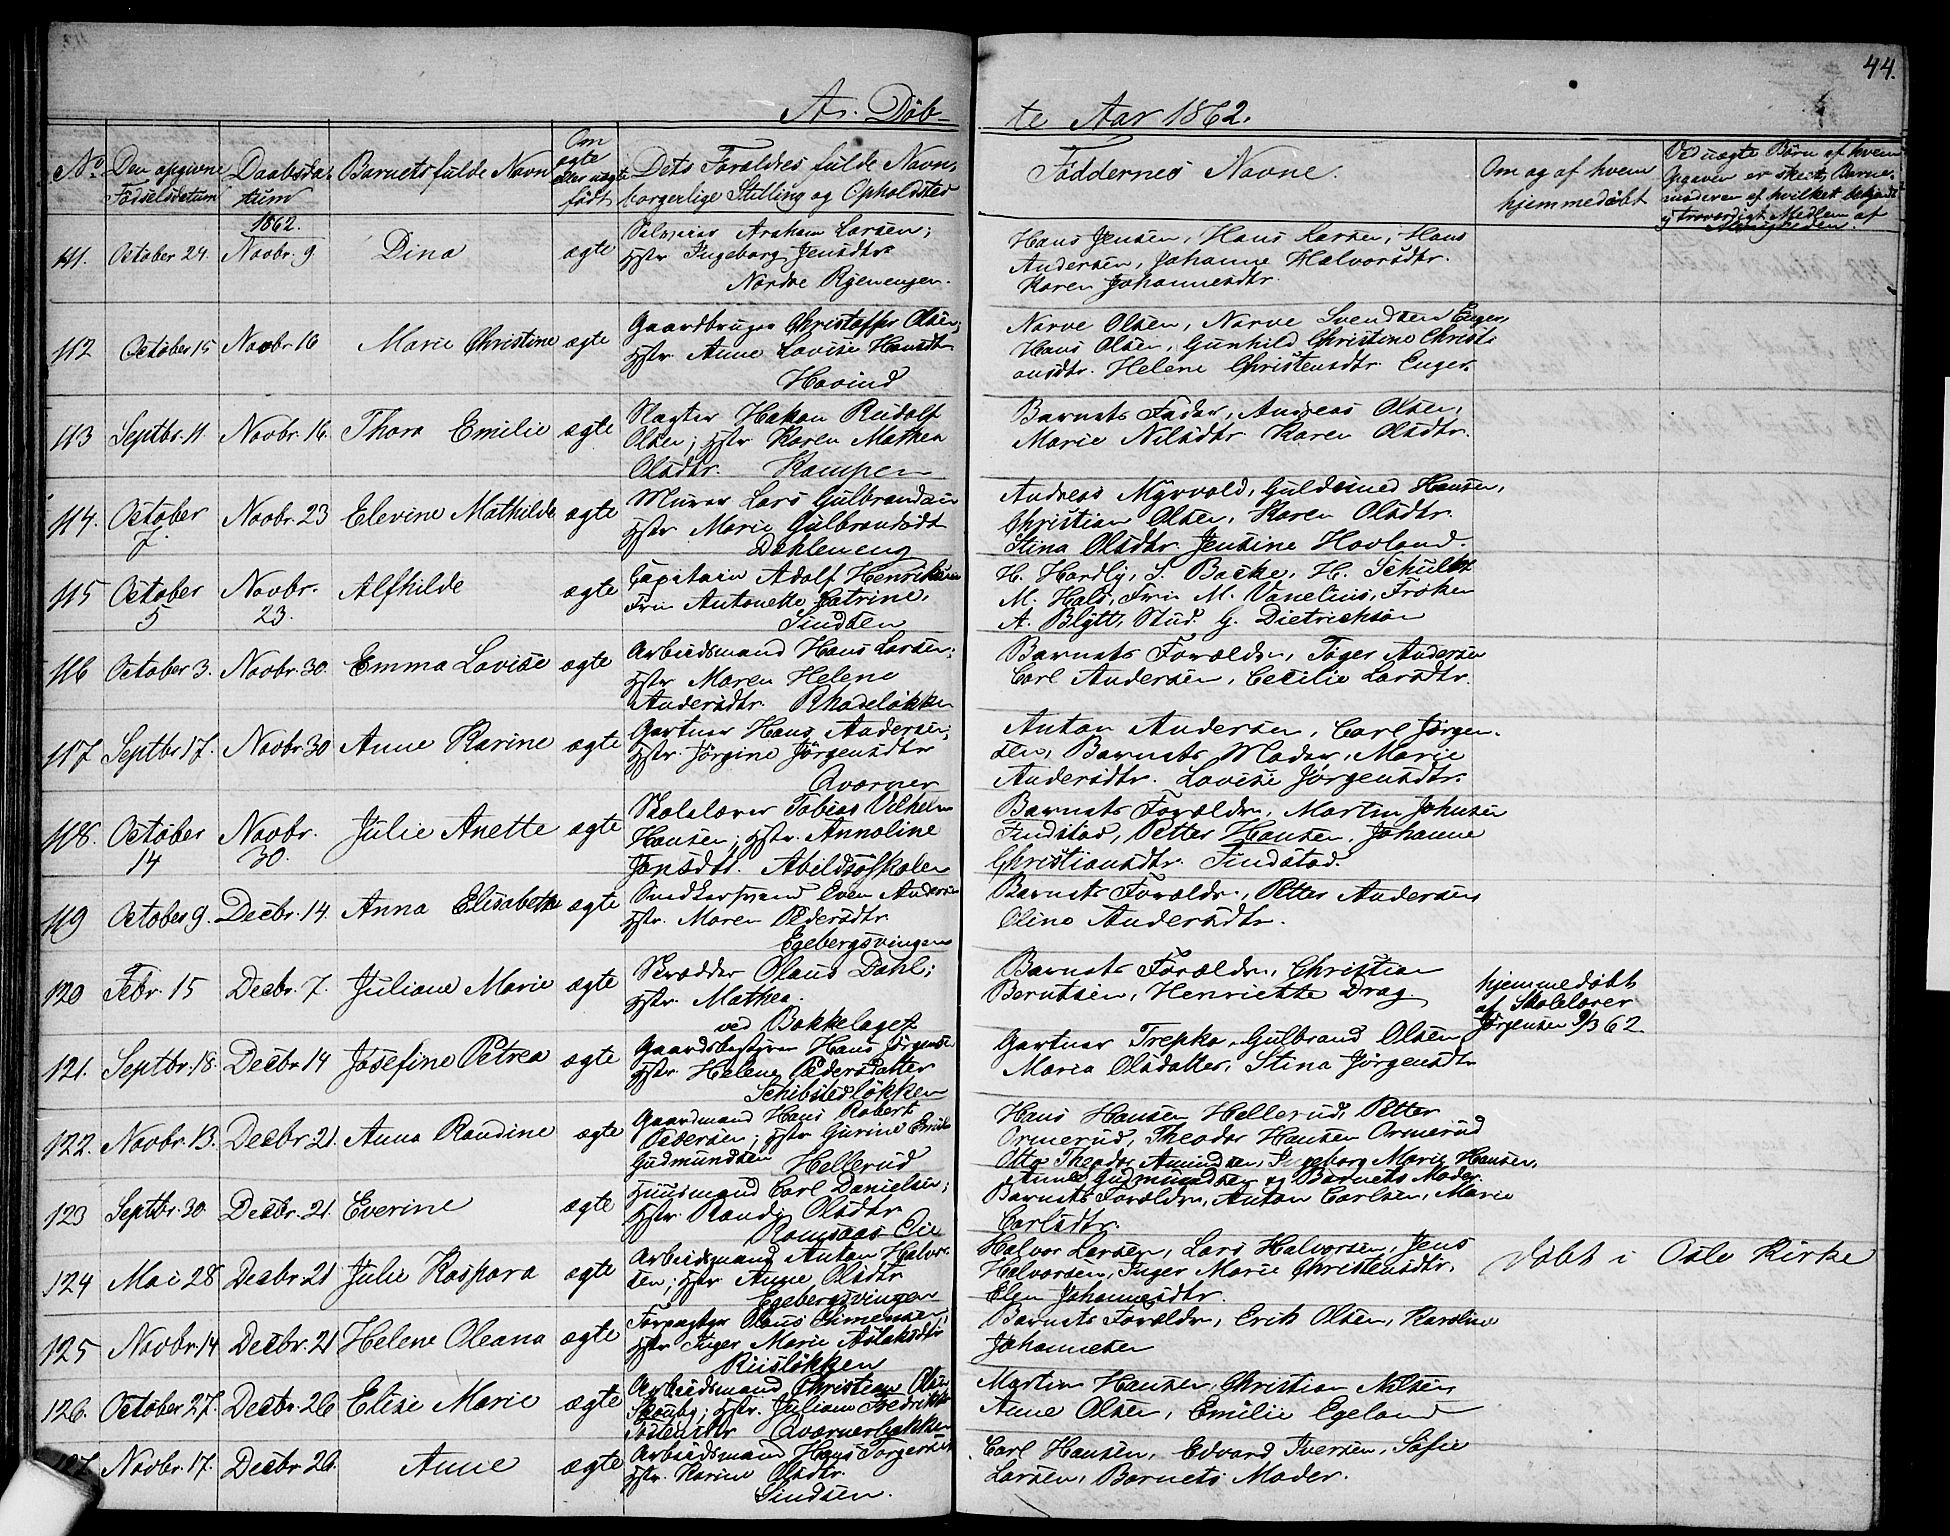 44.
Ar. Döb-
te Aar 1862.
No Den opgivne Fødselsdatum Daabsdatum Barnets fulde Navn Om ægte eller uægte født Dets Forældres fulde Navn, borgerlige Stilling og Opholdsted
Faddernes Navne. Om og af hvem hjemmedøbt Ved uægte Børn af hvem Opgaven er skeet,
1862.
111. October 24. Novbr. 9 Dina ægte
Larsen;
Hstr Ingeborg Jensdtr.
Nordre
Hans Jensen, Hans Larsen, Hans
Andersen, Johanne Halvorsdtr.
Karen Johannesdtr.
112 October 15 Novbr. 16 Marie Christine ægte
Gaardbruger Christoffer Olsen;
Hstr Anne Lovise Hansdtr
Hovind
Narve Olsen, Narve Svendsen Enger,
Hans Olsen, Gunhild Christine Christi
ansdtr. Helene Christensdtr. Enger.
113 Septbr. 11. Novbr. 16. Thora Emilie ægte
Slagter Hakon Rudolf
Olsen; Hstr Karen Mathea
Olsdtr. Kampen
Barnets Fader, Andreas Olsen,
Marie Nilsdtr Karen Olsdtr.
114. October 7. Novbr. 23 Elevine Mathilde ægte
Murer Lars Gulbrandsen
Hstr Marie Gulbrandsdt
Dahleneng
Andreas Myrvold, Guldsmed Hansen,
Christian Olsen, Karen Olsdtr.
Stina Olsdtr. Jensine Hovland.
115 October 5 Novbr. 23. Alfhilde ægte
Capitain Adolf Henriksen
Fru Antonette Catrine.
Sindsen
H. Hardly, S. Backe, H. Schultz
M. Hald, Fru M. Vanelius, Frøken
A. Blytt, Stud. G. Dietrichson
116 October 3. Novbr. 30. Emma Lovise ægte
Arbeidsmand Hans Larsen;
Hstr Maren Helene
Andersdtr. Rhodeløkken
Barnets Forældre, Andersen
Carl Andersen, Cecilie Larsdtr.
117 Septbr 17. Novbr. 30 Anne Karine ægte
Gartner Hans Andersen;
Hstr. Jörgine Jörgensdtr
Qværner
Anton Andersen, Carl Jørgen-
sen, Barnets Moder, Marie
Andersdtr. Lovise Jørgensdtr.
118. October 14 Novbr. 30. Julie Anette ægte
Skolelærer Tobias Vilhelm
Hansen; Hstr. Annoline
Jonsdtr. Abildsøskolen
Barnets Forældre, Martin Johnsen
Findstad, Petter Hansen, Johanne
Christiansdtr. Findstad
119 October 9. Decbr. 14. Anna Elisabeth ægte
Even Andersen
Hstr. Maren Pedersdtr
Egebergsvingen
Barnets Forældre, Petter Andersen,
Oline Andersdtr.
120 Febr. 15 Decbr. 7. Juliane Marie ægte
Skrædder Olaus Dahl;
Hstr. Mathea.
ved Bækkelaget
Barnets Forældre, Christian
Berntsen, Henriette Drag
hjemmedøbt
af Skolelærer
Jørgensen 9/3 62
121. Septbr. 18. Decbr 14 Josefine Petrea ægte
Gaardsbestyrer Hans Jørgensen
Hstr Helene Pedersdatter
Schibstedløkken
Gartner Trepka, Gulbrand Olsen,
Maria Olsdatter, Stina Jörgensdtr
122. Novbr. 13. Decbr 21. Anna Randine ægte
Gaardmand Hans Robert
Pedersen; Hstr Gurine
Gudmundsen Hellerud
Hans Hansen Hellerud, Petter
Ormerud, Theodor Hansen Ormerud
Otto Theodor Amundsen, Ingeborg Marie Hansen,
Anne Gudmundsen og Barnets Moder.
123 Septbr. 30. Decbr. 21. Everine ægte
Huusmand Carl Danielsen;
Hstr. Randi Olsdtr
Romsaas Eie
Barnets Forældre, Anton Carlsen, Marie
Carlsdtr.
124 Mai 28 Decbr. 21 Julie Kaspara ægte
Arbeidsmand Anton Halvor-
sen; Hstr Anne Olsdtr
Egebergsvingen
Halvor Larsen, Lars Halvorsen, Jens
Halvorsen, Inger Marie Christensdtr,
Elen Johannesdtr.
Døbt i Oslo Kirke
125 Novbr. 14 Decbr. 21 Helene Oleana ægte
Forpagter Olaus Simensen,
Hstr Inger Marie Aslaksdtr
Riisløkken
Barnets Forældre, Erik Olsen, Karoline
Johannesen
126. October 27. Decbr. 26 Elise Marie ægte
Arbeidsmand Christian Olsen
Hstr. Juliane Fredrikke
Qværnerbakken
Martin Hansen, Christian Nilsen,
Anne Olsen, Emilie Egeland
127. Novbr. 17. Decbr 26. Anne ægte
Arbeidsmand Hans Torgersen
Hstr. Karine Olsdtr.
Sindsen.
Carl Hansen, Edvard Iversen, Sofie
Larsen, Barnets Moder.